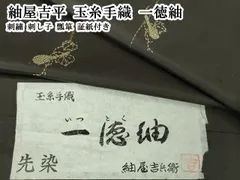 紬屋吉平 玉糸手織 一徳紬
刺繍 刺し子 瓢箪 証紙付き
玉糸手織
いっとく
一徳紬
先染
紬屋吉兵衛